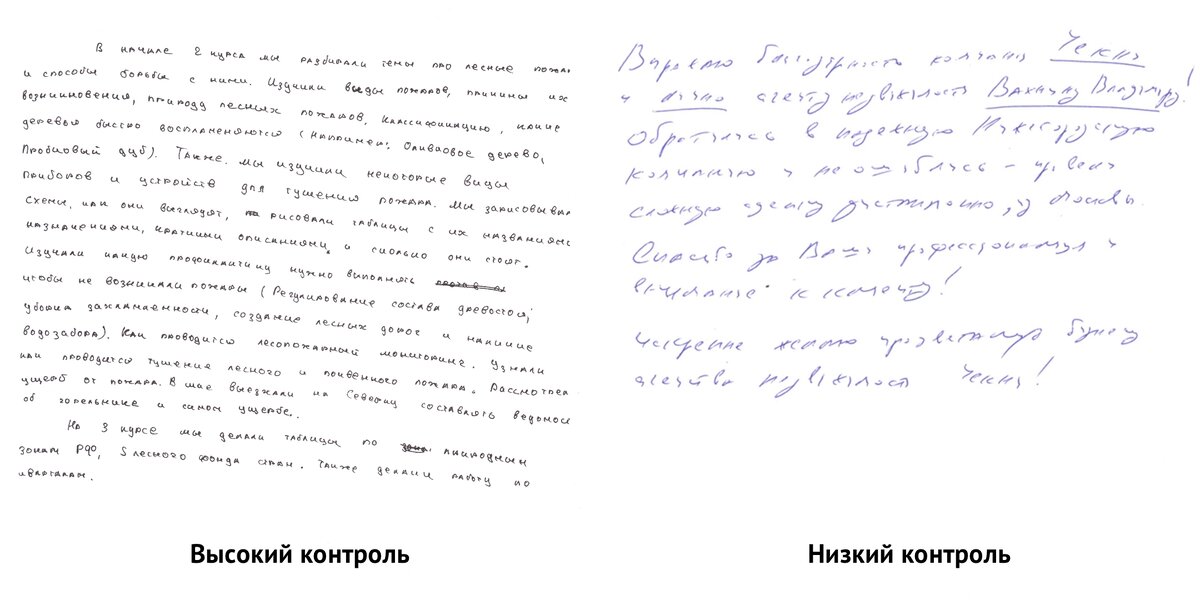 В начале 2 курса мы разбирали темы про лесные пожа
и способы борьбы с ними. Изучили виды пожаров, причины их
возникновения, природу лесных пожаров, классификацию, какие
деревья быстро воспламеняются (Например: Оливковое дерево,
Пробковый дуб). Также мы изучили некоторые виды
приборов и устройств для тушения пожара. Мы зарисовывал
схемы, как они выглядят, рисовали таблицы с их названиями
назначениями, краткими описаниями и сколько они стоят.
Изучали какую профилактику нужно выполнять
чтобы не возникали пожары (Регулирование состава древостоя;
уборка захламленности, создание лесных дорог и наличие
водозабора). Как проводится лесопожарный мониторинг. Узнали
как проводится тушение лесного и почвенного пожара. Рассмотрел
ущерб от пожара. В мае выезжали на составлять ведомос
об горельнике и самом ущербе.
На 3 курсе мы делали таблицы по природным
зонам РФ, S лесного фонда стран. Также делали работу по
кварталам.
Выражаю благодарность компании Чекни
и лично агенту недвижимость Вахнину Владимиру!
Обратилась в надежную Нижегородскую
компанию и не ошиблась - провели
сложную сделку дистанционно, из Москвы.
Спасибо за Ваш профессионализм и
внимание к клиенту!
Искренне желаю процветания бизнесу
агентства недвижимость Чекни!
Высокий контроль
Низкий контроль